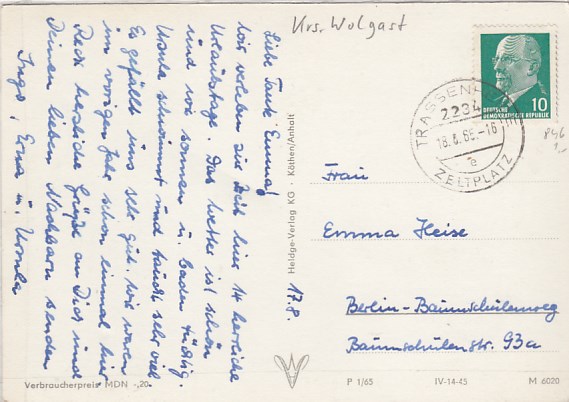 Krs. Wolgast
17.8.
Liebe Tante Emma!
Wir verleben zu Zeit hier 14 herrliche
Urlaubstage. Das Wetter ist schön
und wir sonnen u. baden tüchtig.
Ursula schwimmt und taucht sehr viel
Es gefällt uns sehr gut. wir waren
im vorigen Jahr schon einmal hier
Recht herzliche Grüße an Dich und
Deinen lieben Nachbarn senden
Ingo, Erna u. Ursula
Heldge-Verlag KG · Köthen/Anhalt
DEUTSCHE
DEMOKRATISCHE REPUBLIK
10
2234
18.8.65.-16
ZELTPLATZ
Frau
Emma Heise
Berlin-Baumschulenweg
Baumschulenstr. 93a
Verbraucherpreis MDN -,20
P 1/65
IV-14-45
M 6020